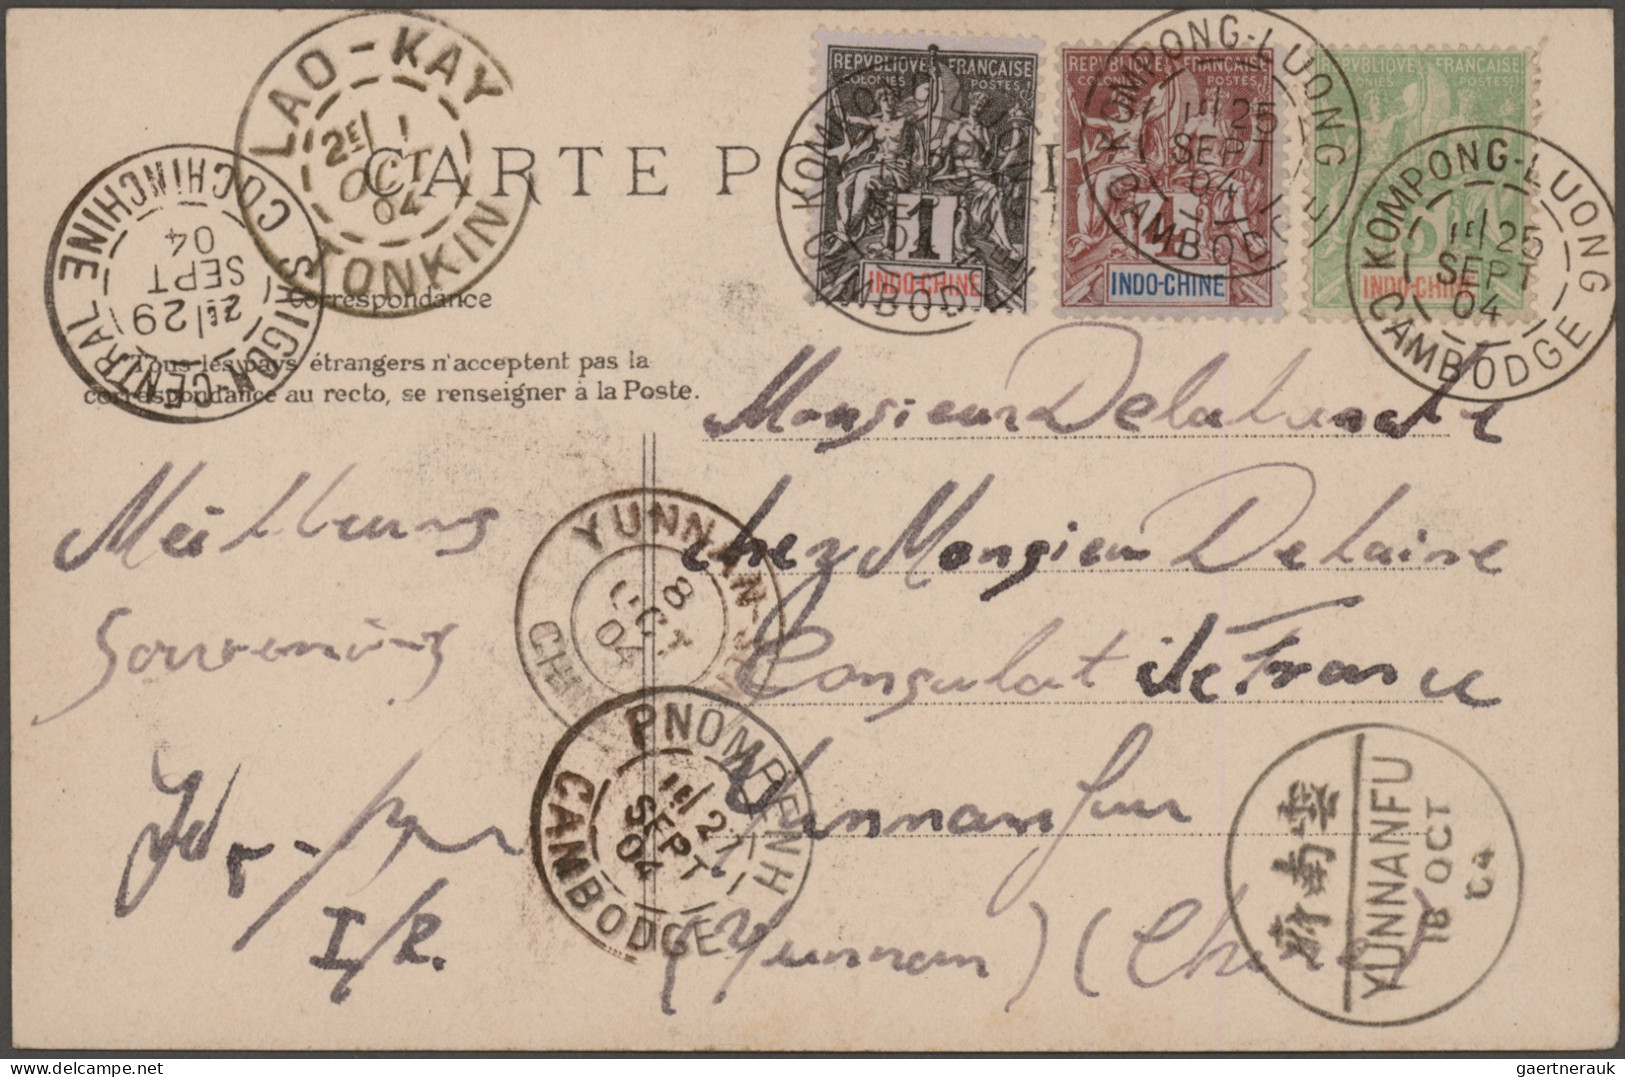 LAO-KAY
2E/ 1
OCT
04
TONKIN
SAIGON-CENTRAL COCHINCHINE
2E/29
SEPT
04
CARTE P
REPVBLIQVE FRANÇAISE
COLONIES POSTES
1
INDO-CHINE
REPVBLIQVE FRANÇAISE
COLONIES POSTES
INDO-CHINE
REPVBLIQVE FRANÇAISE
COLONIES POSTES
5
INDO-CHINE
KOMPONG-LUONG
CAMBODGE
KOMPONG-LUONG
1E/25
SEPT
04
CAMBODGE
KOMPONG-LUONG
1E/25
SEPT
04
CAMBODGE
Correspondance
Tous les pays étrangers n'acceptent pas la
correspondance au recto, se renseigner à la Poste.
Monsieur Delalande
chez Monsieur Delaine
Consulat de France
Yunnanfou
(Yunnan) (Chine)
Meilleurs
Souvenirs
YUNNAN
8
OCT
04
CHINE
PNOMPENH
1E/27
SEPT
04
CAMBODGE
雲南府
YUNNANFU
18 OCT
04
gaertnerauk delcampe.net